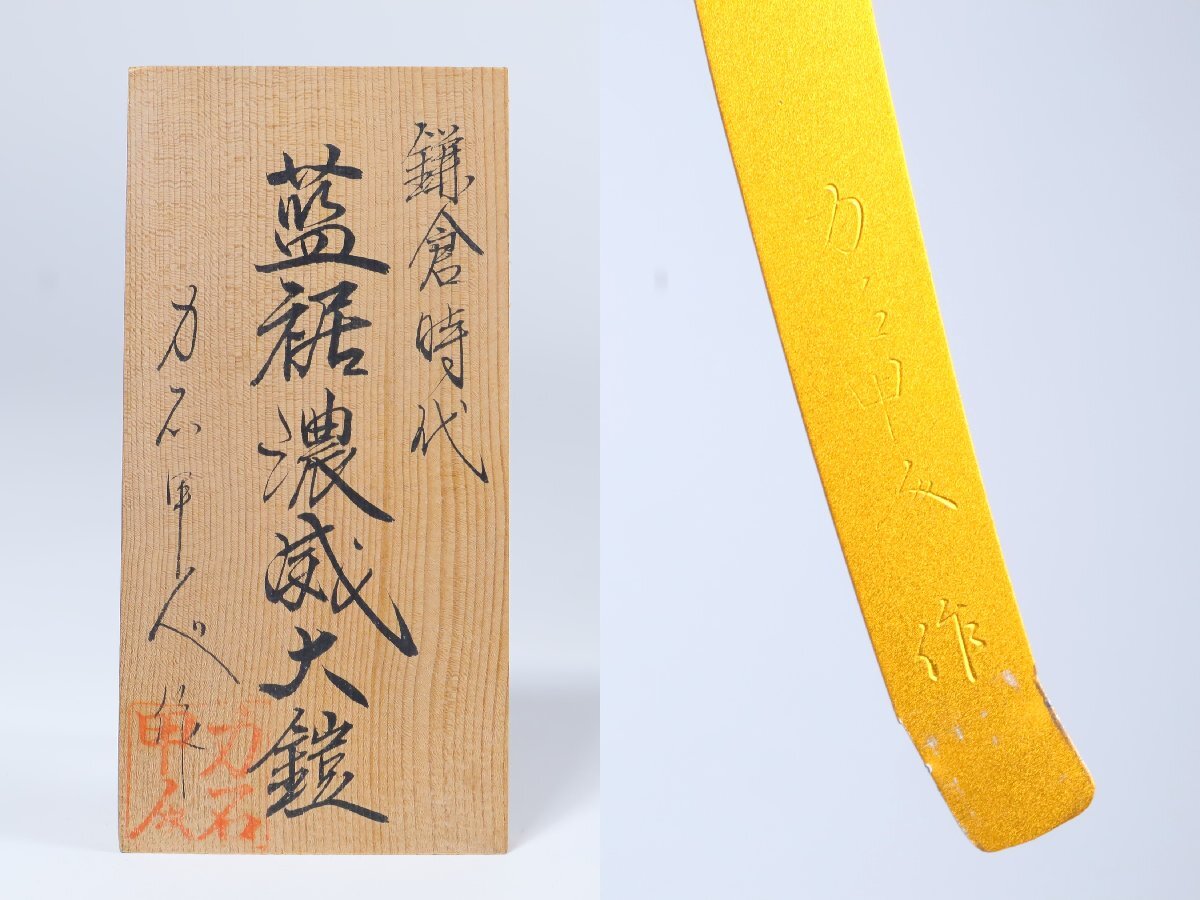 鎌倉時代
藍裾濃威大鎧
力石甲人作
力石
甲人
力石甲人作